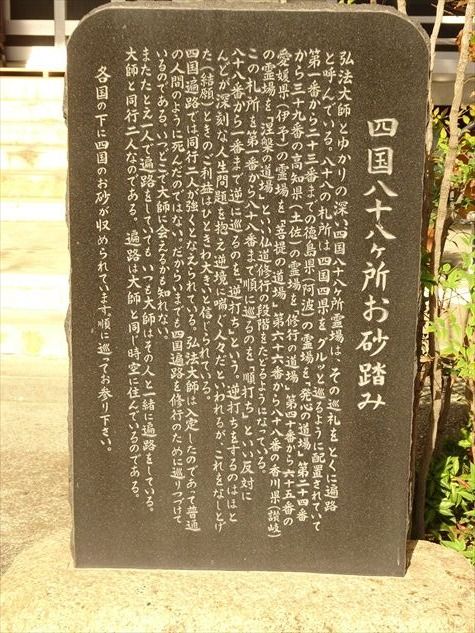 四国八十八ヶ所お砂踏み
弘法大師とゆかりの深い四国八十八ヶ所霊場は、その巡礼をとくに遍路
と呼んでいる。八十八の札所は四国四県をグルッと巡るように配置されていて
第一番から二十三番までの徳島県(阿波)の霊場を「発心の道場」第二十四番
から三十九番の高知県(土佐)の霊場を「修行の道場」第四十番から六十五番の
愛媛県(伊予)の霊場を「菩提の道場」第六十六番から八十八番の香川県(讃岐)
の霊場を「涅槃の道場」といい仏道修行の段階をたどるようになっている。
この札所を第一番から八十八番まで順に巡るのを「順打ち」といい反対に
八十八番から一番まで逆に巡るのを「逆打ち」という。逆打ちをするのはほと
んどが深刻な人生問題を抱え逆境に喘ぐ人々だといわれるが、これをなしとげ
た(結願)ときのご利益はひときわ大きいと信じられている。
四国遍路では同行二人が強くとなえられている。弘法大師は入定したのであって普通
の人間のように死んだのではない。だからいまでも四国遍路を修行のために巡りつづけて
いるのである。いつどこで大師に会えるかも知れない。
またたとえ一人で遍路をしていても いつも大師はその人と一緒に遍路をしている。
大師と同行二人なのである。遍路は大師と同じ時空に住んでいるのである。
各国の下に四国のお砂が収められています順に巡ってお参り下さい。